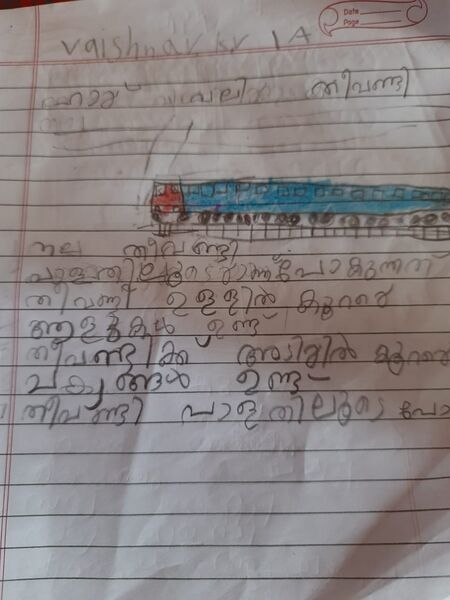 Date
Page
Vaishnav kv 1A
തീവണ്ടി
നല തീവണ്ടി
പാളത്തിലൂടെയാണ് പോകുന്നത്
തീവണ്ടി ഉള്ളിൽ കുറരെ
ആളുകൾ ഉണ്ട്
തീവണ്ടിക്ക അടിയിൽ കുറരെ
ചക്രങ്ങൾ ഉണ്ട്
തീവണ്ടി പാളതിലൂടെ പോ